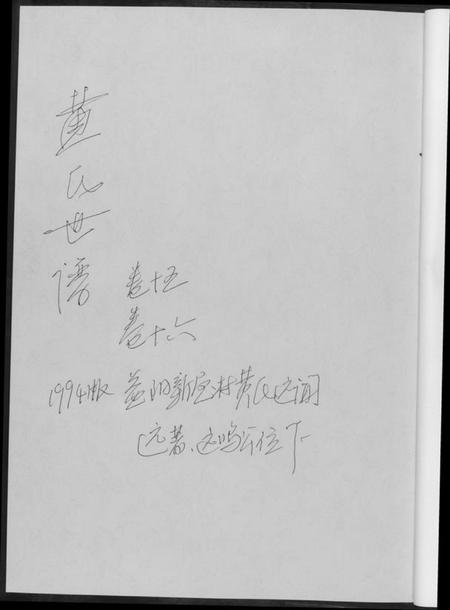 黄氏世谱
卷十五
卷十六
1994版 益阳新屋村黄氏达闻
远著、达鸣公位下